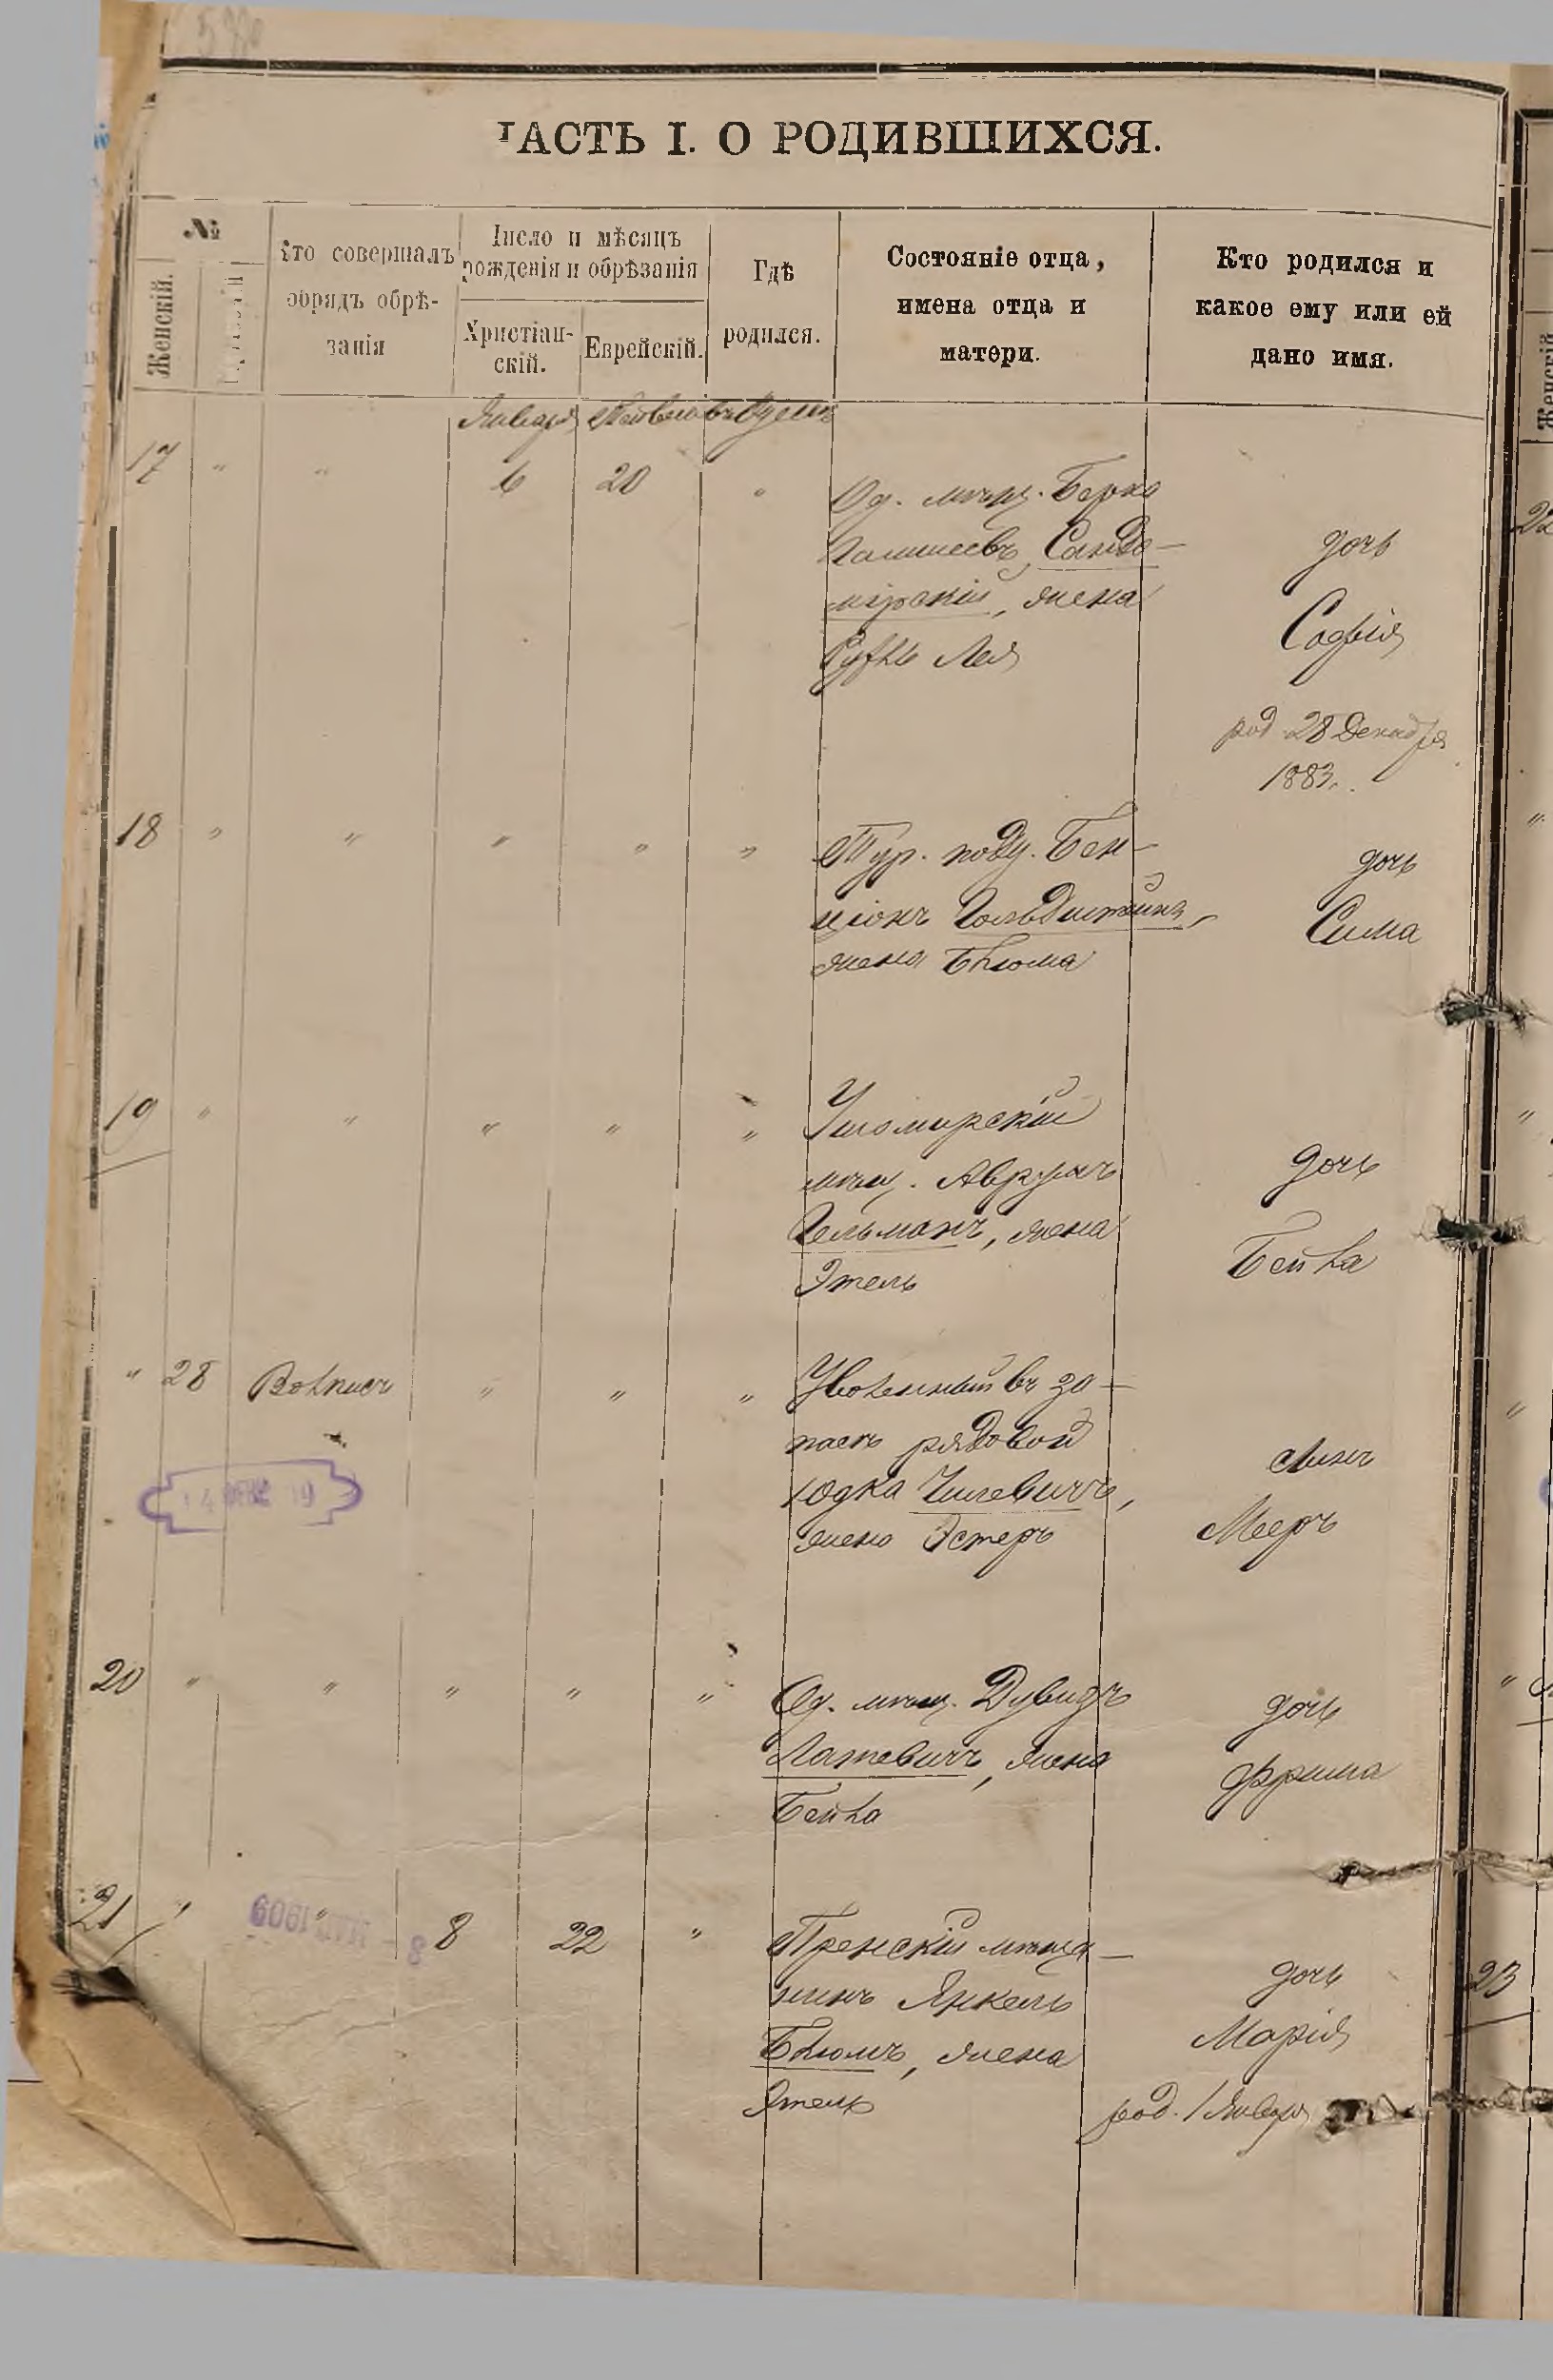 ЧАСТЬ I. О РОДИВШИХСЯ.
№
Женскій.
Кто совершалъ
обрядъ обрѣ-
занія
Число и мѣсяцъ
рожденія и обрѣзанія
Христіан-
скій.
Еврейскій.
Гдѣ
родился.
Состояніе отца,
имена отца и
матери.
Кто родился и
какое ему или ей
дано имя.
Января
17 " " 6 20 "
Од. мѣщ. Берко
Сандо-
мірскій, жена
Лея
дочь
Софія
род 28 Декабря
1883.
18 " " " " "
Тур. подд. Бен-
ціонъ Гольдштейнъ,
жена Блюма
дочь
Сима
19 " " " " "
Ушомирскій
мѣщ. Аврумъ
Гельманъ, жена
Этель
дочь
Бейла
" 28 " " "
Уволенный въ за-
пасъ рядовой
Юдка
жена Эстеръ
сынъ
Мееръ
20 " " " " "
Од. мѣщ. Дувидъ
жена
Бейла
дочь
Фрима
21 " " 8 22 "
Пренскій мѣща-
нинъ Янкель
Блюмъ, жена
Этель
дочь
Марія
род. 1 Января
1909
22
23
Женскій